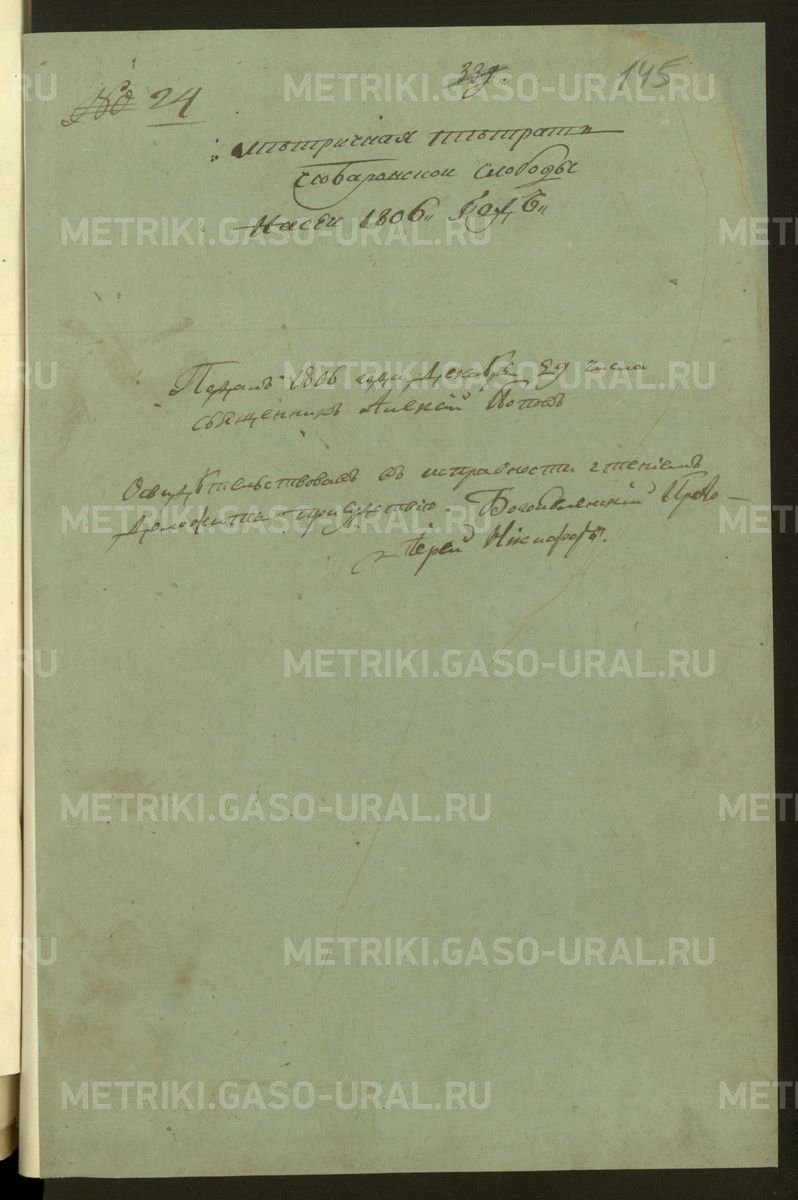 339.
145
№ 24
Мѣтричная тѣтрать
Сюваромской слободы
Насей 1806 Годъ
Поданъ 1806 года декабря 29 числа
священникъ Алекѣй Поповъ
Освидѣтельствовавъ въ исправности чтенiемъ
присудствiю. Богоявленскiй Прото-
iерей Никифоръ.
METRIKI.GASO-URAL.RU